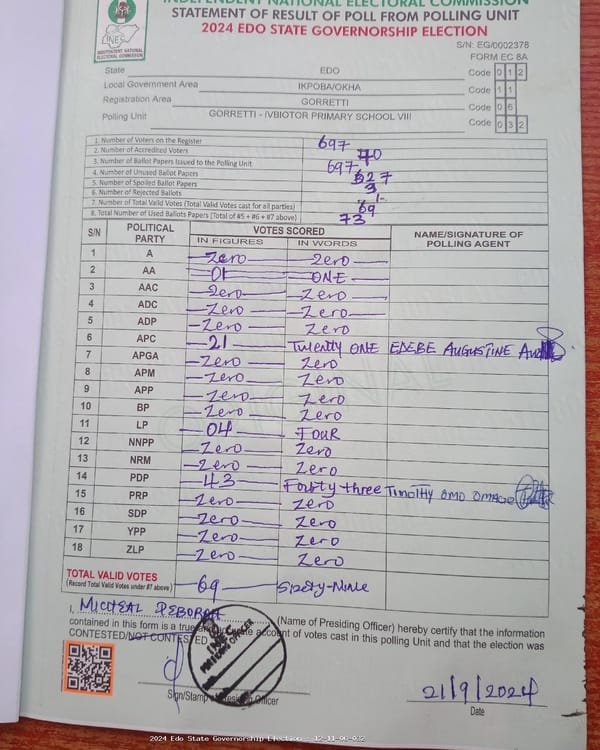 INDEPENDENT NATIONAL ELECTORAL COMMISSION
STATEMENT OF RESULT OF POLL FROM POLLING UNIT
2024 EDO STATE GOVERNORSHIP ELECTION
INEC
INDEPENDENT NATIONAL ELECTORAL COMMISSION
S/N: EG/0002378
FORM EC 8A
State EDO Code 0 1 2
Local Government Area IKPOBA/OKHA Code 1 1
Registration Area GORRETTI Code 0 6
Polling Unit GORRETTI - IVBIOTOR PRIMARY SCHOOL VIII Code 0 3 2
1. Number of Voters on the Register 697
2. Number of Accredited Voters 70
3. Number of Ballot Papers Issued to the Polling Unit 697
4. Number of Unused Ballot Papers 627
5. Number of Spoiled Ballot Papers 3
6. Number of Rejected Ballots 1
7. Number of Total Valid Votes (Total Valid Votes cast for all parties) 69
8. Total Number of Used Ballots Papers (Total of #5 + #6 + #7 above) 73
S/N POLITICAL PARTY VOTES SCORED NAME/SIGNATURE OF POLLING AGENT
IN FIGURES IN WORDS
1 A Zero Zero
2 AA 01 ONE
3 AAC Zero Zero
4 ADC Zero Zero
5 ADP Zero Zero
6 APC 21 Twenty ONE EDEBE AUGUSTINE
7 APGA Zero Zero
8 APM Zero Zero
9 APP Zero Zero
10 BP Zero Zero
11 LP 04 FOUR
12 NNPP Zero Zero
13 NRM Zero Zero
14 PDP 43 Fourty three TIMOTHY OMO
15 PRP Zero Zero
16 SDP Zero Zero
17 YPP Zero Zero
18 ZLP Zero Zero
TOTAL VALID VOTES 69 Sixty-Nine
(Record Total Valid Votes under #7 above)
I, MICHEAL DEBORAH (Name of Presiding Officer) hereby certify that the information
contained in this form is a true and accurate account of votes cast in this polling Unit and that the election was
CONTESTED/NOT CONTESTED
INEC
PRESIDING OFFICER
Sign/Stamp of Presiding Officer
21/9/2024
Date
2024 Edo State Governorship Election - 12-11-06-032